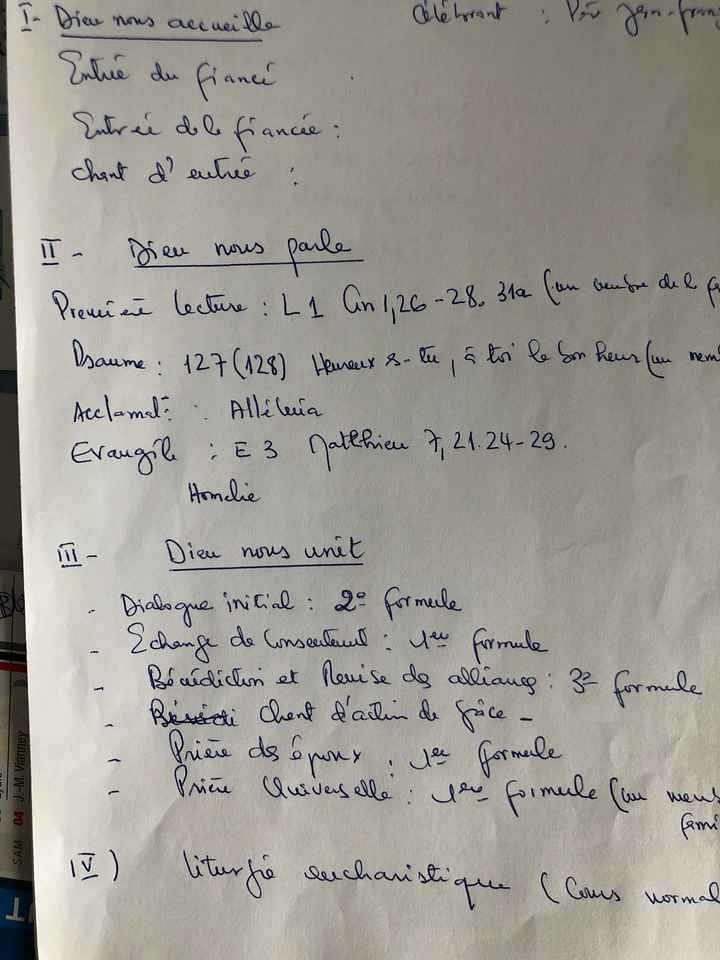 I- Dieu nous accueille
Célébrant : Père Jean-fran
Entrée du fiancé
Entrée de la fiancée :
Chant d'entrée :
II - Dieu nous parle
Première lecture : L 1 Gn 1,26-28. 31a (un membre de la fa
Psaume : 127 (128) Heureux es-tu, à toi le bonheur (un mem
Acclamat° : Alléluia
Evangile : E 3 Matthieu 7, 21. 24-29.
Homélie
III - Dieu nous unit
- Dialogue initial : 2e formule
- Echange de Consentement : 1ère formule
- Bénédiction et Remise des alliances : 3e formule
- Chant d'action de grâce -
- Prière des époux : 1ère formule
- Prière Universelle : 1ère formule (un mem
fami
IV) liturgie eucharistique (Cours normal
SAM 04 J.-M. Vianney